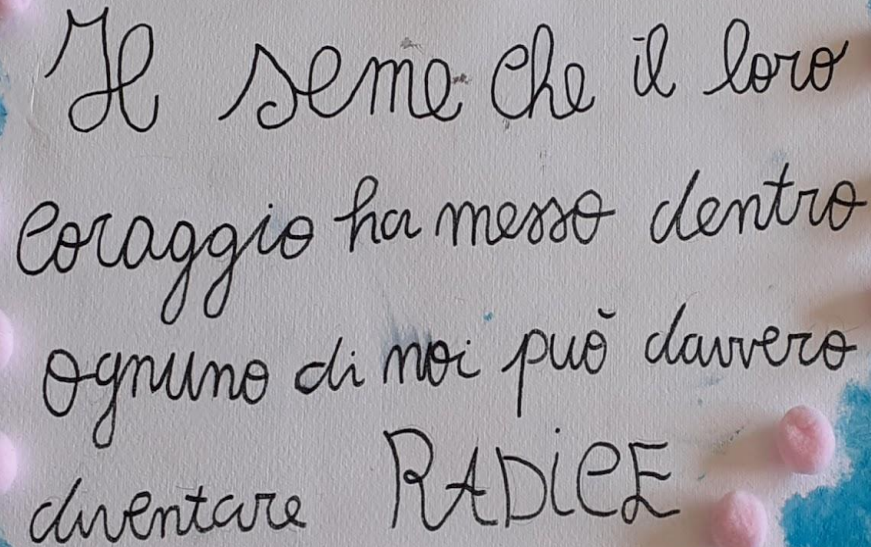 Il seme che il loro
coraggio ha messo dentro
ognuno di noi può davvero
diventare RADiCE